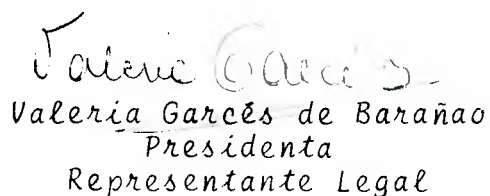 Valerie Garcés
Valeria Garcés de Barañao
Presidenta
Representante Legal